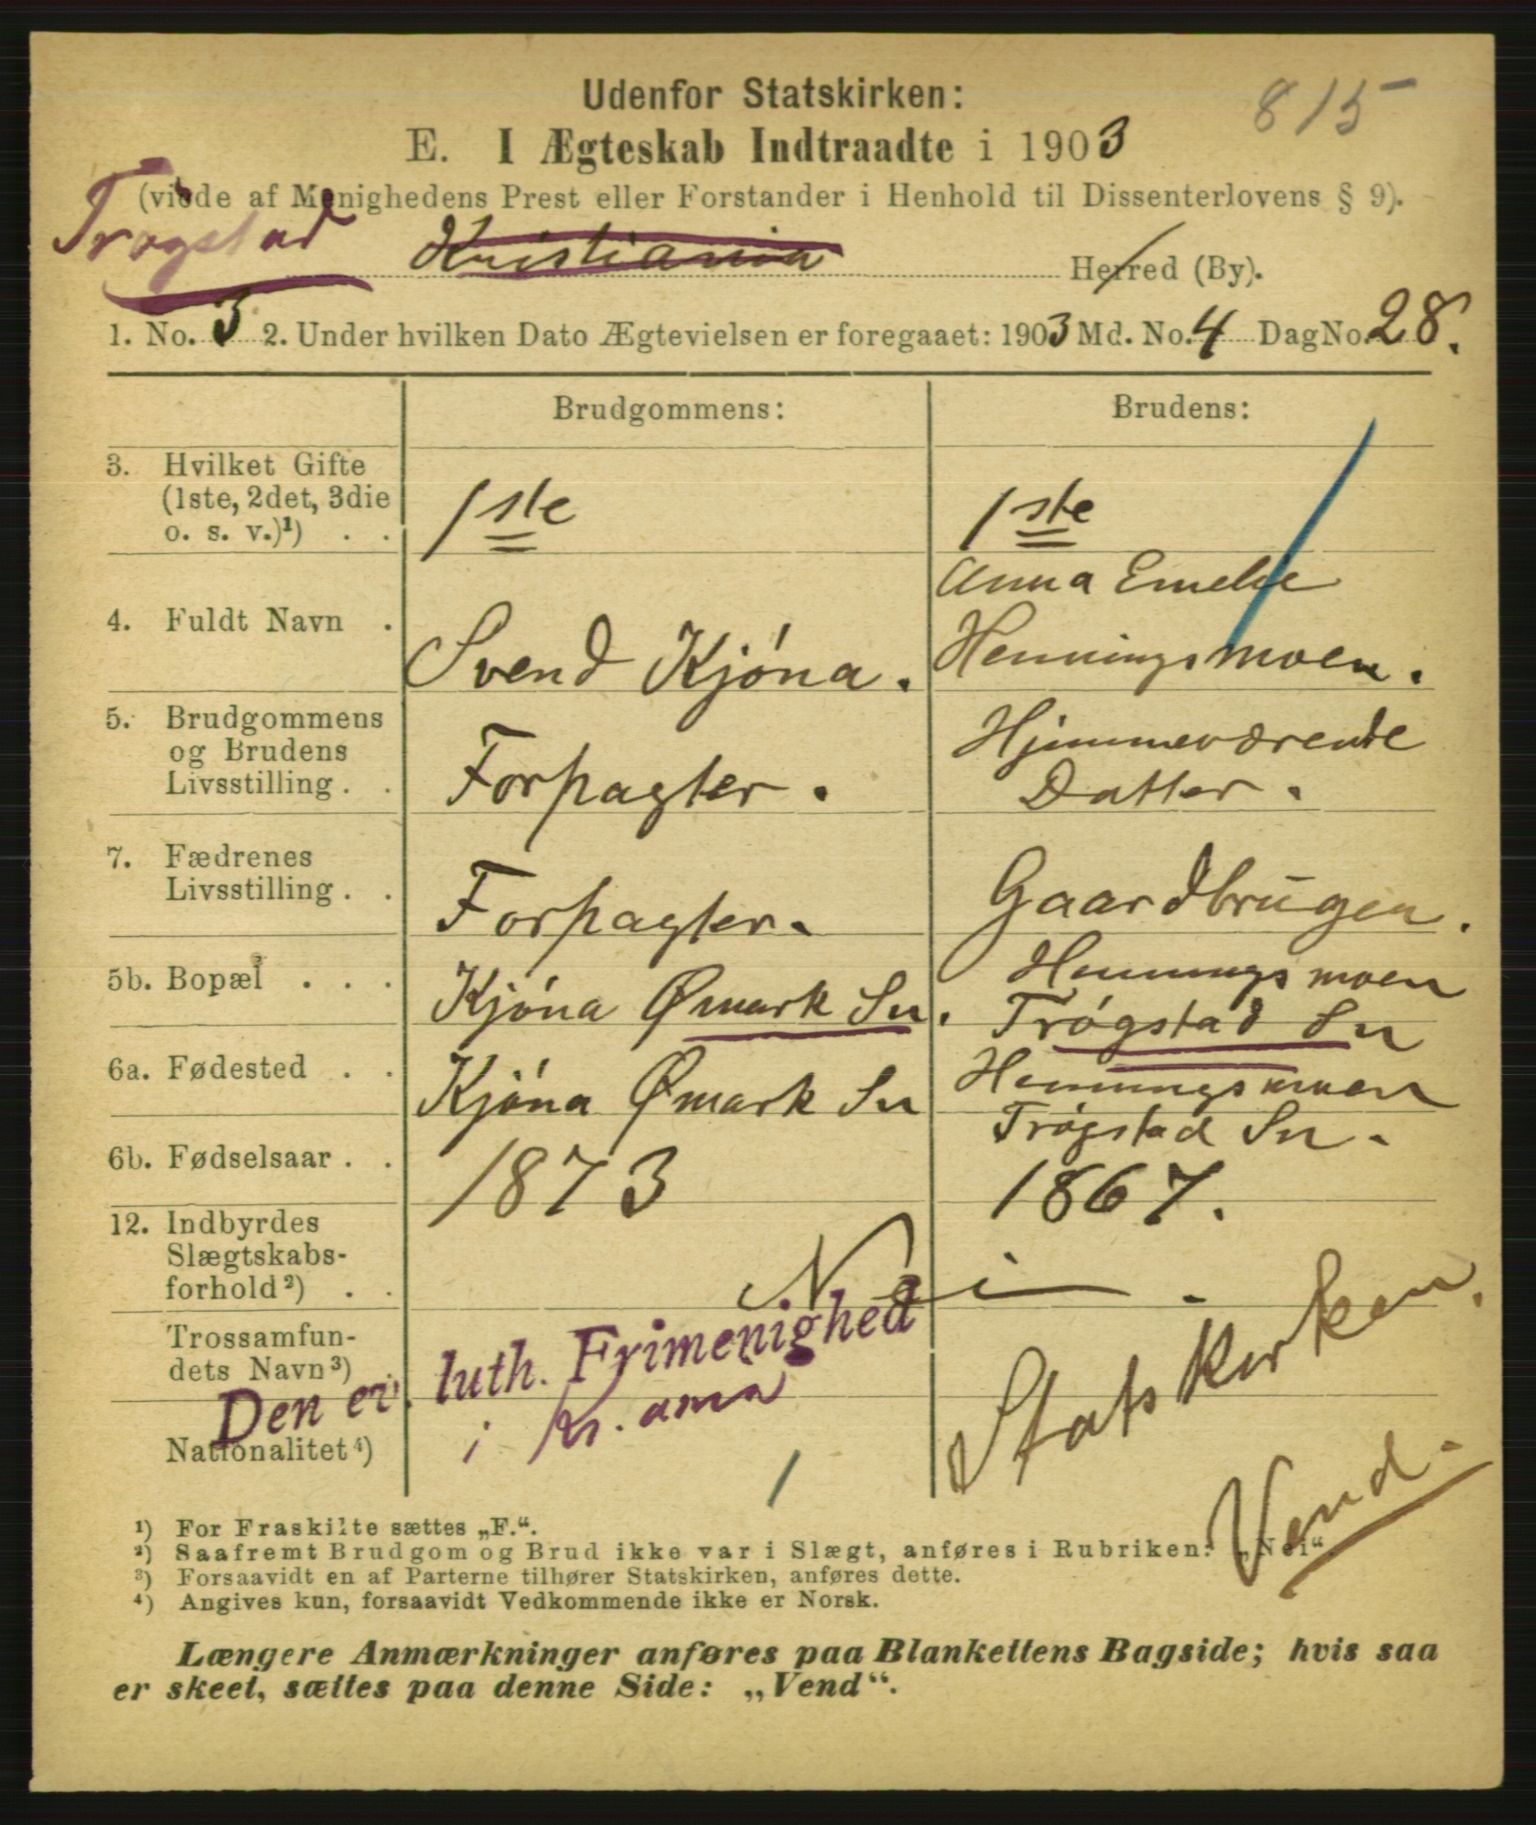 815
Udenfor Statskirken:
E. I Ægteskab Indtraadte i 1903
(viede af Menighedens Prest eller Forstander i Henhold til Dissenterlovens § 9).
Trøgstad Kristiania Herred (By).
1. No. 3 2. Under hvilken Dato Ægtevielsen er foregaaet: 1903 Md. No. 4 Dag No. 28.
Brudgommens: Brudens:
3. Hvilket Gifte
(1ste, 2det, 3die
o. s. v.)¹) . . 1ste 1ste
4. Fuldt Navn . Svend Kjóna. Anna Emelie
Henningsmoen.
5. Brudgommens
og Brudens
Livsstilling . . Forpagter. Hjemmeværende
Datter.
7. Fædrenes
Livsstilling . . Forpagter. Gaardbrugen.
5b. Bopæl ³ . . . Kjóna Ømark Sn. Henningsmoen
Trógstad Sn
6a. Fødested . . Kjóna Ømark Sn Henningsmoen
Trógstad Sn.
6b. Fødselsaar . . 1873 1867.
12. Indbyrdes
Slægtskabs-
forhold ²) . . Nei.
Trossamfun-
dets Navn ³) Den ev. luth. Frimenighed
i Kr.ania Statskirken.
Nationalitet ⁴)
Vend.
¹) For Fraskilte sættes „F.“.
²) Saafremt Brudgom og Brud ikke var i Slægt, anføres i Rubriken: „Nei“.
³) Forsaavidt en af Parterne tilhører Statskirken, anføres dette.
⁴) Angives kun, forsaavidt Vedkommende ikke er Norsk.
Længere Anmærkninger anføres paa Blankettens Bagside; hvis saa
er skeet, sættes paa denne Side: „Vend“.